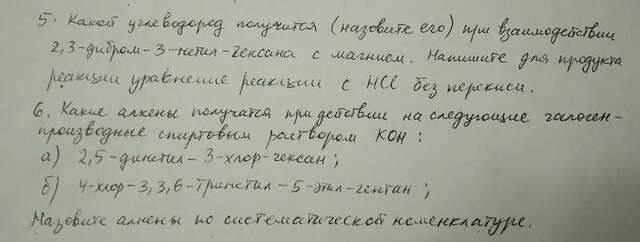 5. Какой углеводород получится (назовите его) при взаимодействии
2,3-дибром-3-метил-гексана с магнием. Напишите для продукта
реакции уравнение реакции с HCl без перекиси.
6. Какие алкены получатся при действии на следующие галоген-
производные спиртовым раствором КОН:
а) 2,5-диметил-3-хлор-гексан;
б) 4-хлор-3,3,6-триметил-5-этил-гептан;
Назовите алкены по систематической номенклатуре.